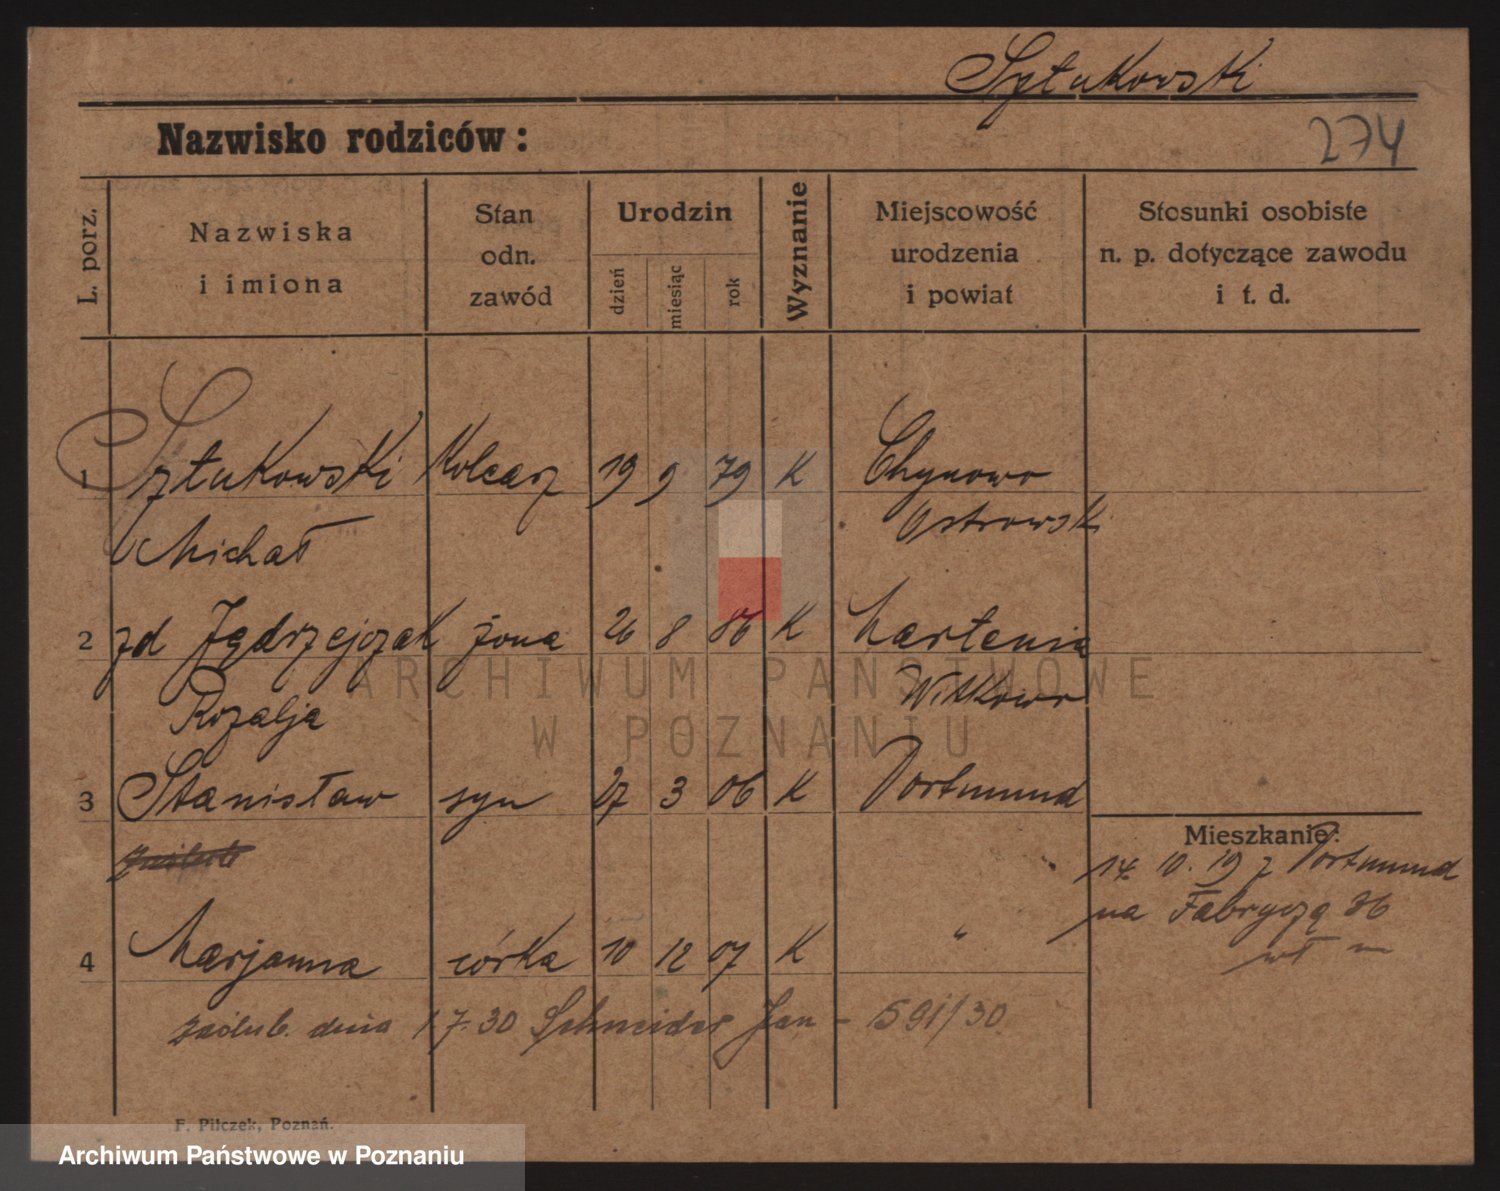 Sztukowski
Nazwisko rodziców:
274
L. porz.
Nazwiska
i imiona
Stan
odn.
zawód
Urodzin
dzień
miesiąc
rok
Wyznanie
Miejscowość
urodzenia
i powiat
Stosunki osobiste
n. p. dotyczące zawodu
i t. d.
1 Sztukowski Kolearz 19 9 79 K Chynowo
Michał Ostrowski
2 zd Jędrzejczak żona 26 8 86 K
Rozalja Witkowo
3 Stanisław syn 27 3 06 K Dortmund
Mieszkanie:
14. 10. 19 z Dortmund
na Fabryczą 36
4 Marjanna córka 10 12 07 K "
zaślub. dnia 1 7.30 Schneider Jan - 591/30
F. Pilczek, Poznań.
ARCHIWUM PAŃSTWOWE
W POZNANIU
Archiwum Państwowe w Poznaniu